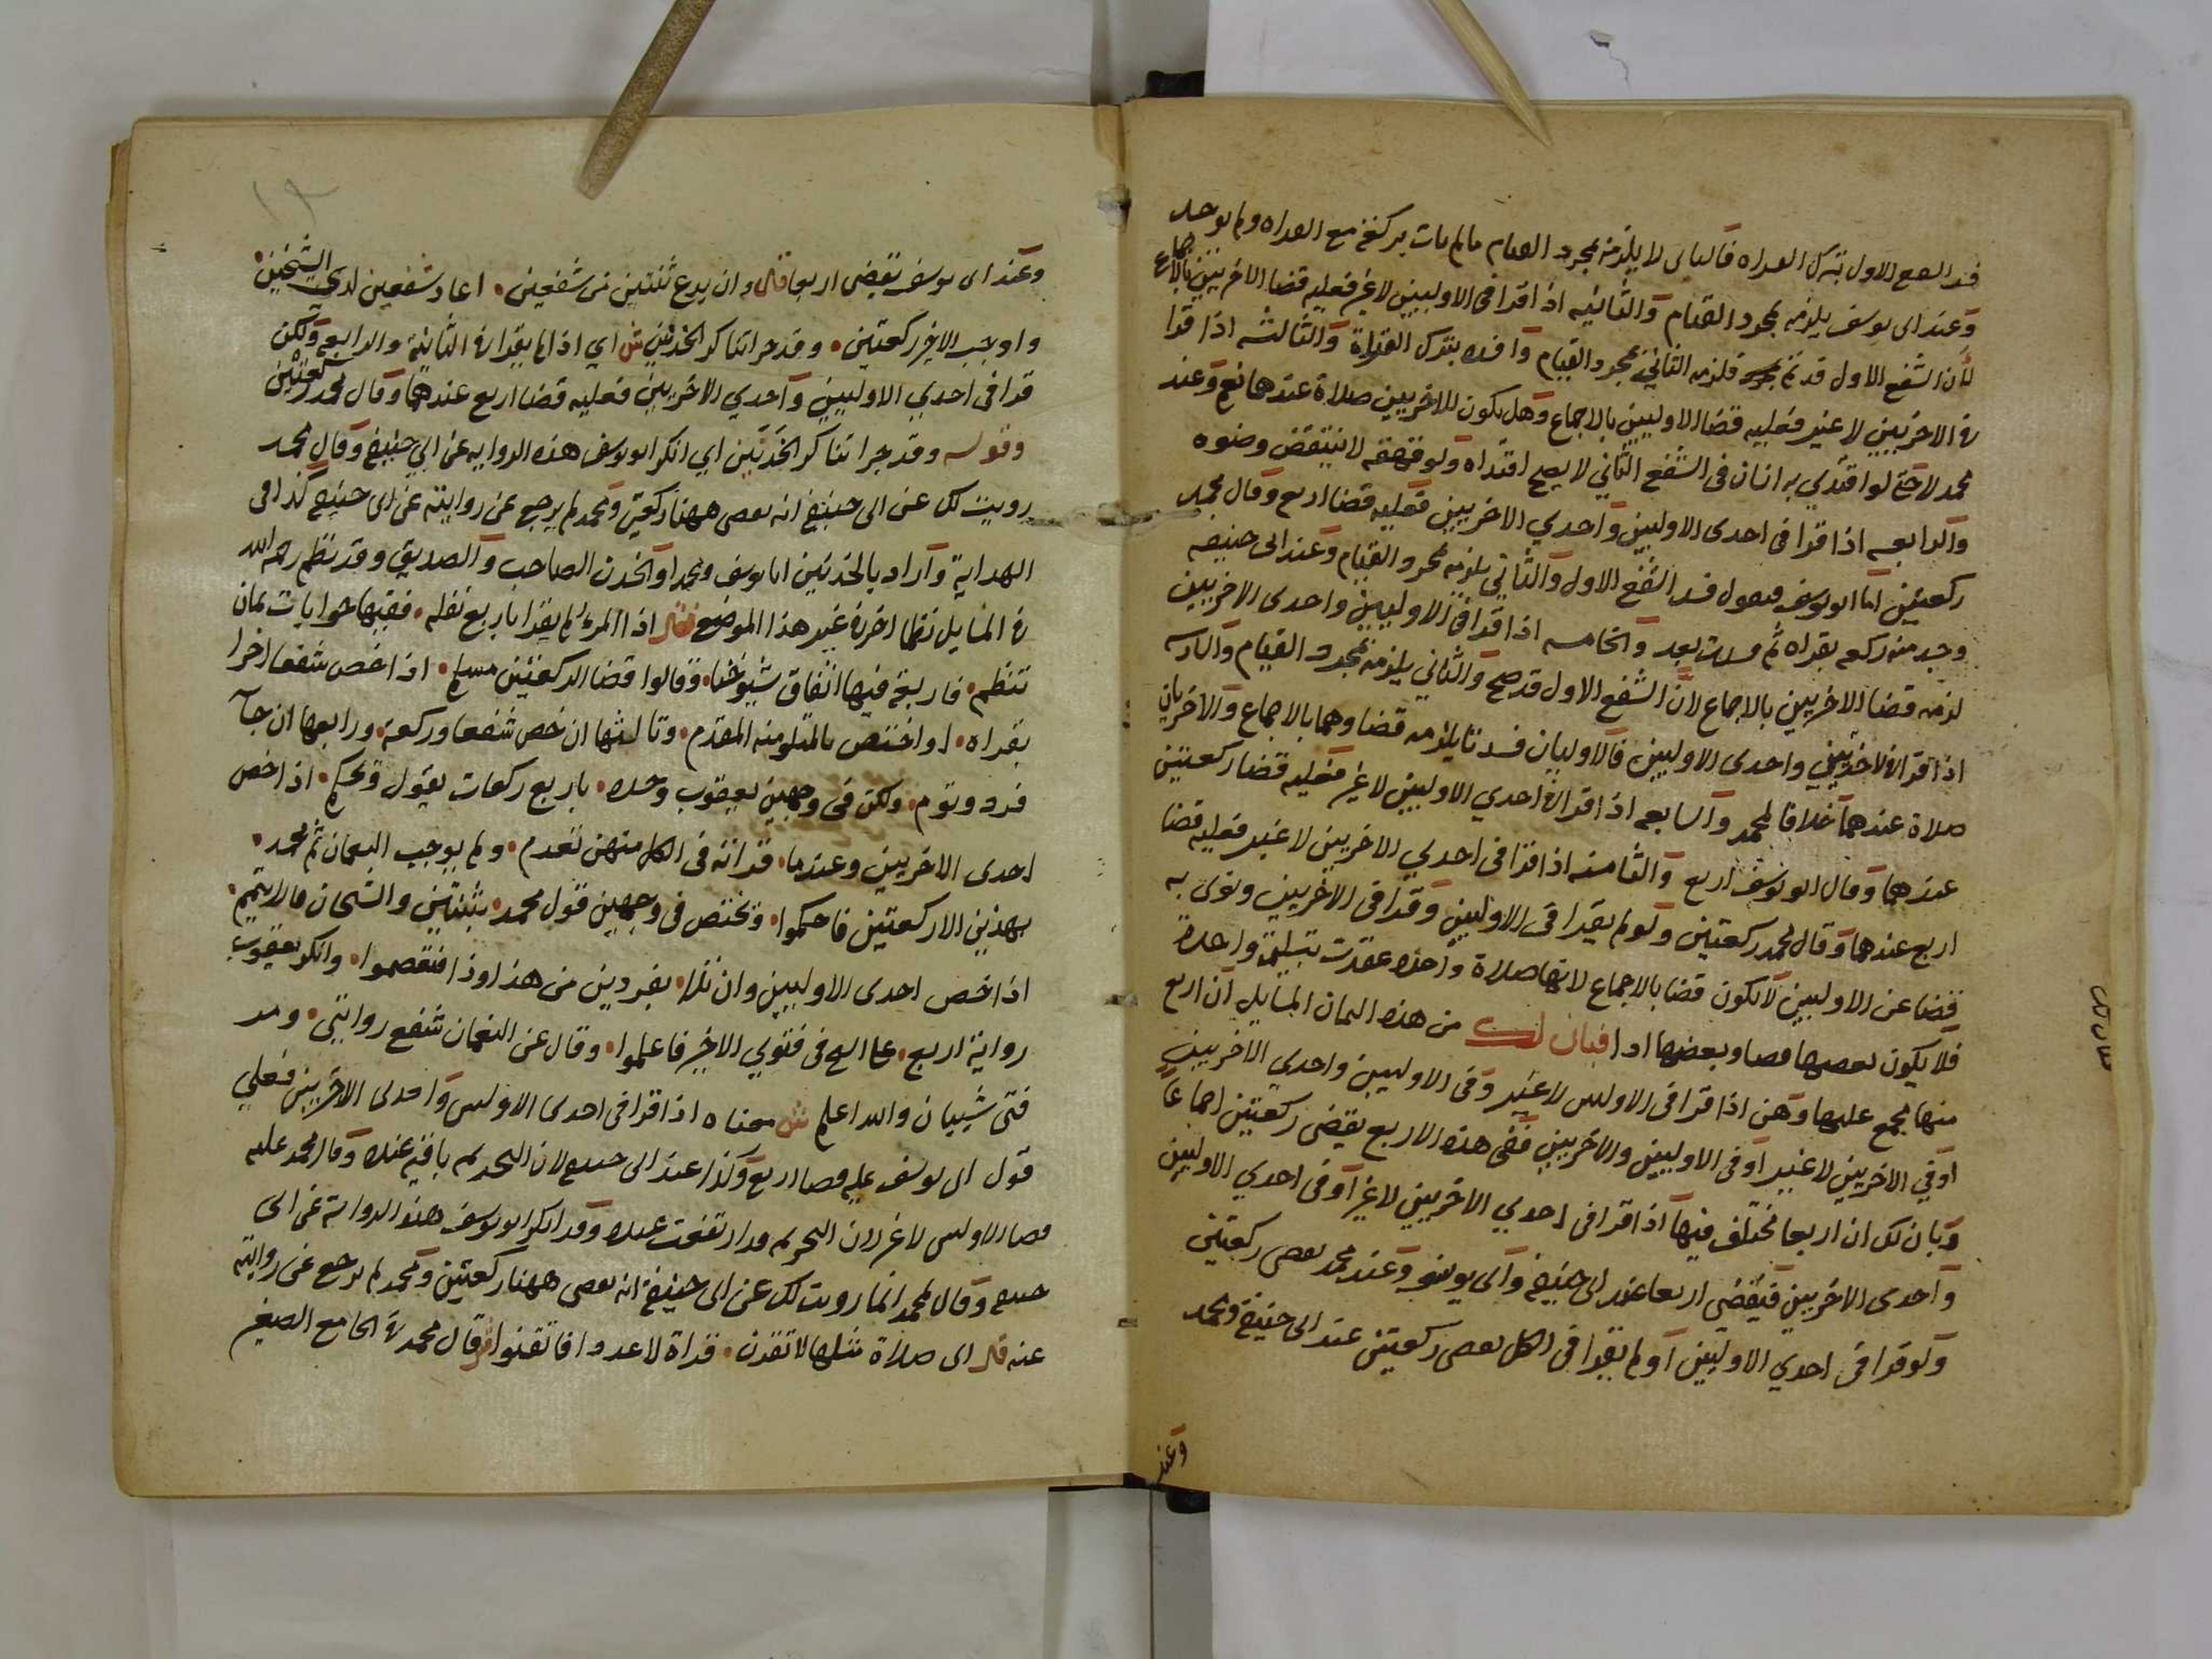 فسد الشفع الاول بترك القراه فالثاني لا يلزمه بمجرد القيام مالم يات بركعة مع القراه ولم يوجد
وعند ابي يوسف يلزمه بمجرد القيام والثانيه اذا قرا في الاوليين لا غير فعليه قضا الاخريين بالاجماع
لان الشفع الاول قد تم فلزمه الثاني بمجرد القيام وافسده بترك القراة والثالثه اذا قرا
في الاخريين لا غير فعليه قضا الاوليين بالاجماع وهل يكون للاخريين صلاة عندهما نعم وعند
محمد لا حتى لو اقتدي به انسان في الشفع الثاني لا يصح اقتداه ولو قهقه لا ينتقض وضوه
والرابعه اذا قرا في احدى الاوليين واحدي الاخريين فعليه قضا اربع وقال محمد
ركعتين اما ابو يوسف فيقول فسد الشفع الاول والثاني يلزمه بمجرد القيام وعند ابى حنيفه
وجد منه ركعه بقراه ثم فسدت بعد والخامسه اذا قرا في الاوليين واحدى الاخريين
لزمه قضا الاخريين بالاجماع لان الشفع الاول قد صح والثاني يلزمه بمجرد القيام والسادسه
اذا قرا في الاخريين واحدى الاوليين فالاوليان فسدتا يلزمه قضاوهما بالاجماع والاخريان
صلاة عندهما خلافا لمحمد والسابعه اذا قرا في احدي الاوليين لا غير فعليه قضا ركعتين
عندهما وقال ابو يوسف اربع والثامنه اذا قرا في احدي الاخريين لا غير فعليه قضا
اربع عندهما وقال محمد ركعتين ولو لم يقرا في الاوليين وقرا في الاخريين ونوى به
قضا عن الاوليين لا يكون قضا بالاجماع لانها صلاة واحده عقدت بتسليمة واحدة
فلا يكون بعضها قضا وبعضها ادا فبان لك من هذه الثمان المسايل ان اربع
منها مجمع عليها وهن اذا قرا في الاوليين لا غير وفي الاوليين واحدي الاخريين
اوفي الاخريين لا غير او في الاوليين والاخريين ففي هذه الاربع يقضى ركعتين اجماعا
وبان لك ان اربعا مختلف فيها اذا قرا في احدي الاخريين لا غير او في احدي الاوليين
واحدى الاخريين فيقضي اربعا عند ابي حنيفة وابي يوسف وعند محمد يقضي ركعتين
ولو قرا في احدي الاوليين او لم يقرا في الكل يقضي ركعتين عند ابي حنيفة ومحمد
وعند
وعند ابى يوسف يقضى اربعا قال وان يدع ثنتين من شفعين . اعاد شفعين لدي الشيخين .
واوجب الاخير ركعتين . وقد جرا تناكر الخدنين ش اي اذا لم يقرا في الثانية والرابعه ولكن
قرا في احدي الاوليين واحدي الاخريين فعليه قضا اربع عندهما وقال محمد ركعتين
وقوله وقد جرا تناكر الخدنين اي انكر ابو يوسف هذه الروايه عن ابي حنيفة وقال محمد
رويت لك عن ابي حنيفة انه يقضي ههنا ركعتين ومحمد لم يرجع عن روايته عن ابي حنيفه كذا في
الهداية واراد بالخدنين ابا يوسف ومحمدا والخدن الصاحب والصديق وقد نظم رحمه الله
في المسايل نظما اخر في غير هذا الموضع فقال اذا المرء لم يقرا باربع نفله . ففيها جوابات ثمان
تنظم . فاربعة فيها اتفاق شيوخنا . وقالوا قضا الركعتين . اذا خص شفعا اخرا
بقراه . او اختص بالمتلو منه المقدم . وثالثها ان خص شفعا وركعة . ورابعها ان جآ
فرد وتوم . ولكن في وجهين يعقوب وحده . باربع ركعات يقول ويحكم . اذا خص
احدى الاخريين وعندما . قراته في الكل منهن تعدم . ولم يوجب النعمان ثم محمد .
بهذين الا ركعتين فاحكموا . وتختص في وجهين قول محمد . بثنتين والشيخان
اذا خص احدى الاوليين وان تلا . بفردين من هذا وذا فتفهموا . وانكر يعقوب
رواية اربع . في فتوي الاخير فاعلموا . وقال عن النعمان شفع روايتى .
فتى شيبان والله اعلم ش معناه اذا قرا في احدى الاوليين واحدى الاخريين فعلي
قول ابى يوسف عليه قضا اربع وكذا عند ابى حنيفه لان التحريمه باقية عنده وقال محمد عليه
قضا الاوليين لا غير لان التحريمه قد ارتفعت عنده وقد انكر ابو يوسف هذه الرواية عن ابى
حنيفه وقال لمحمد انما رويت لك عن ابى حنيفة انه يقضي ههنا ركعتين ومحمد لم يرجع عن روايته
عنه قال اى صلاة مثلها لا تقرن . قراة لا عددا فاتقنوا ش قال محمد في الجامع الصغير